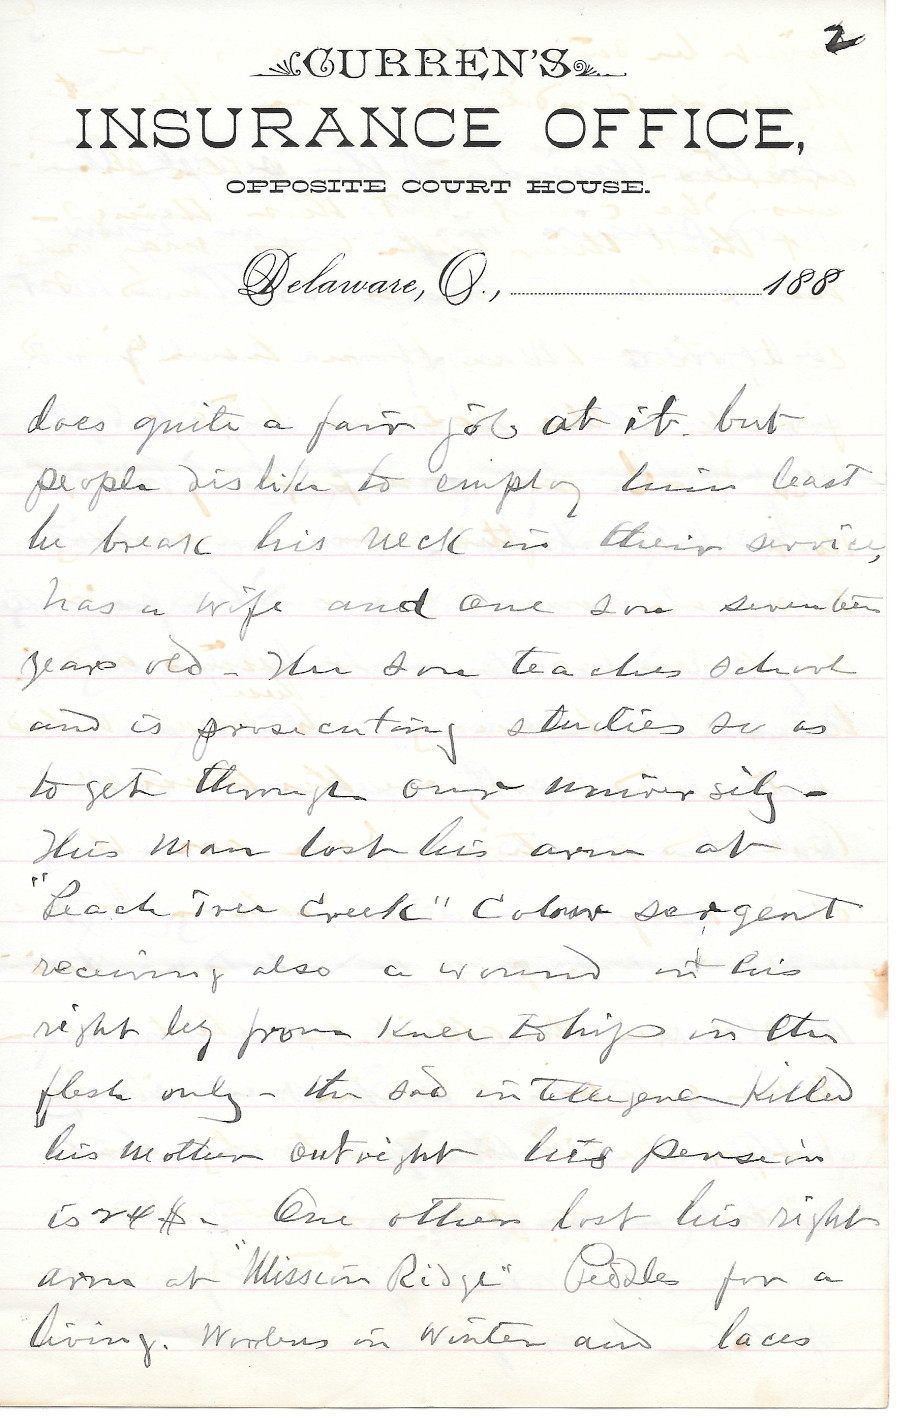 2
CURREN'S
INSURANCE OFFICE,
OPPOSITE COURT HOUSE.
Delaware, O., 188
does quite a fair job at it. but
people dislike to employ him least
he break his neck in their service,
has a wife and one son seventeen
years old - The son teaches school
and is prosecuting studies so as
to get through our university -
This man lost his arm at
"Peach Tree Creek" Colour sergent
receiving also a wound in his
right leg from knee to hip in the
flesh only - the sad intelligence Killed
his mother outright his pension
is 24$ - One other lost his right
arm at "Mission Ridge" Peddles for a
living. Woolens in Winter and laces